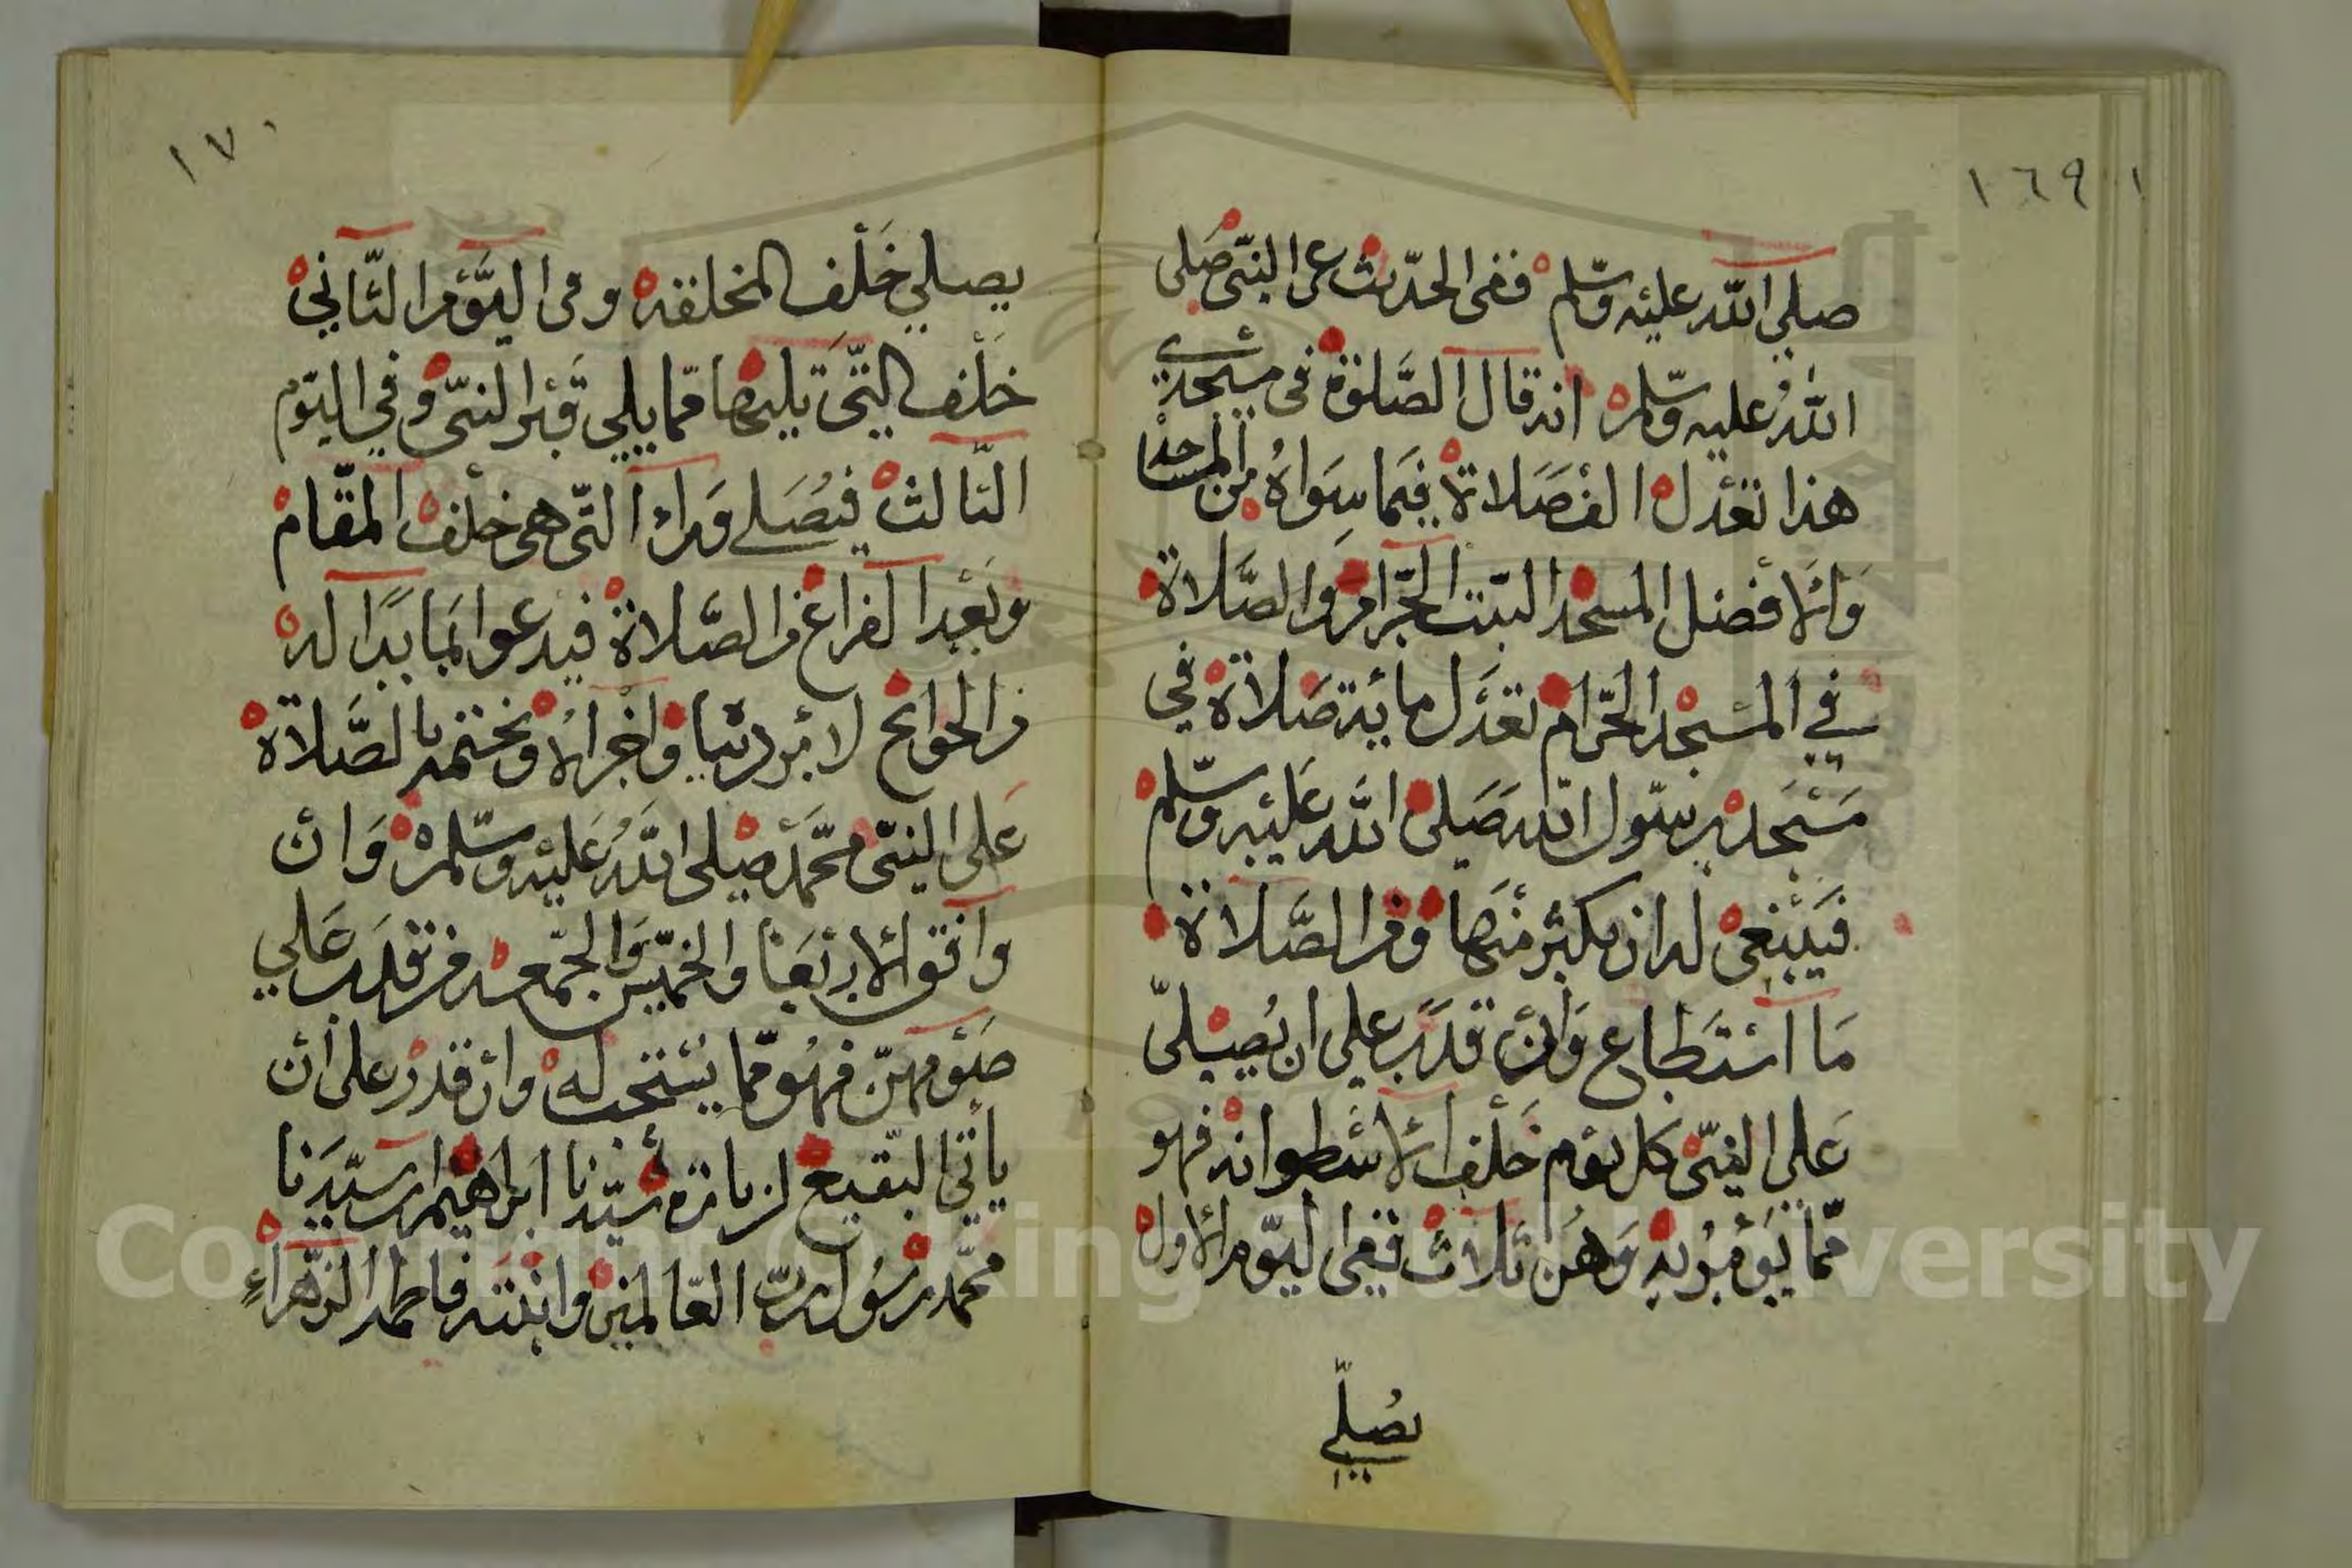 ١٦٩
صلي الله عليه وسلم ففى الحديث عن النبى صلى
الله عليه وسلم انه قال الصلوة فى مسجدي
هذا تعدل الف صلاة فيما سواه من المساجد
والا فضل المسجد البيت الحرام والصلاة
في المسجد الحرام تعدل مائة صلاة في
مسجد رسول الله صلى الله عليه وسلم
فينبغى له ان يكثر منها ومن الصلاة
ما استطاع وان قدر علي ان يصلى
علي النبى كل يوم خلف الاسطوانه فهو
مما يؤمر به وهن ثلاث ففى اليوم الاول
يصلي
١٧٠
يصلي خلف المخلقه وفى اليوم الثاني
خلف التى تليها مما يلي قبر النبى وفي اليوم
الثالث فيصلى وراء التى هى خلف المقام
وبعد الفراغ من الصلاة فيدعوا بما بدا له
من الحوائج لامر دنيا واخرالا ونختمه بالصلاة
على النبى محمد صلى الله عليه وسلم وان
وافق الاربعا والخميس والجمعه فمن قدر علي
صومهن فهو مما يستحب له وان قدر على ان
يأتى البقيع لزيارة سيدنا ابراهيم ابن سيدنا
محمد رسول رب العالمين وابنته فاطمه الزهراء
Copyright © King Saud University